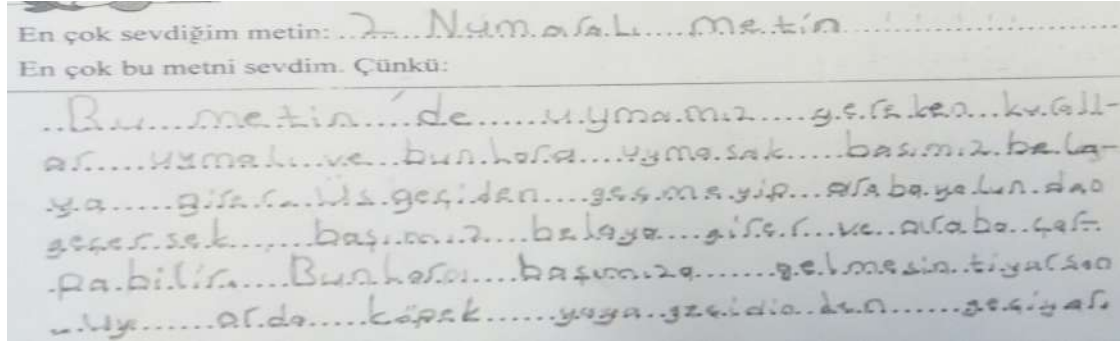 En çok sevdiğim metin: 2. Numaralı metin
En çok bu metni sevdim. Çünkü:
Bu metin'de uymamız gereken kurall-
ar uymalı ve bunlara uymasak başımız bela-
ya girer. Üs geçiden geçmeyip araba yolundan
geçersek başımız belaya girer ve araba çar-
pabilir. Bunlara başımıza gelmesin tiyarsan
uy arda köpek yaya geçidin den geçiyar.